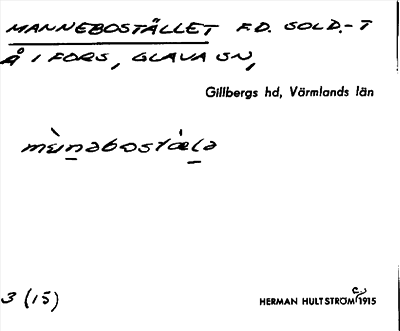 MANNEBOSTÄLLET F.D. SOLD.-T
Å I FORS, GLAVA SN,
Gillbergs hd, Värmlands län
3 (15)
HERMAN HULTSTRÖM 1915